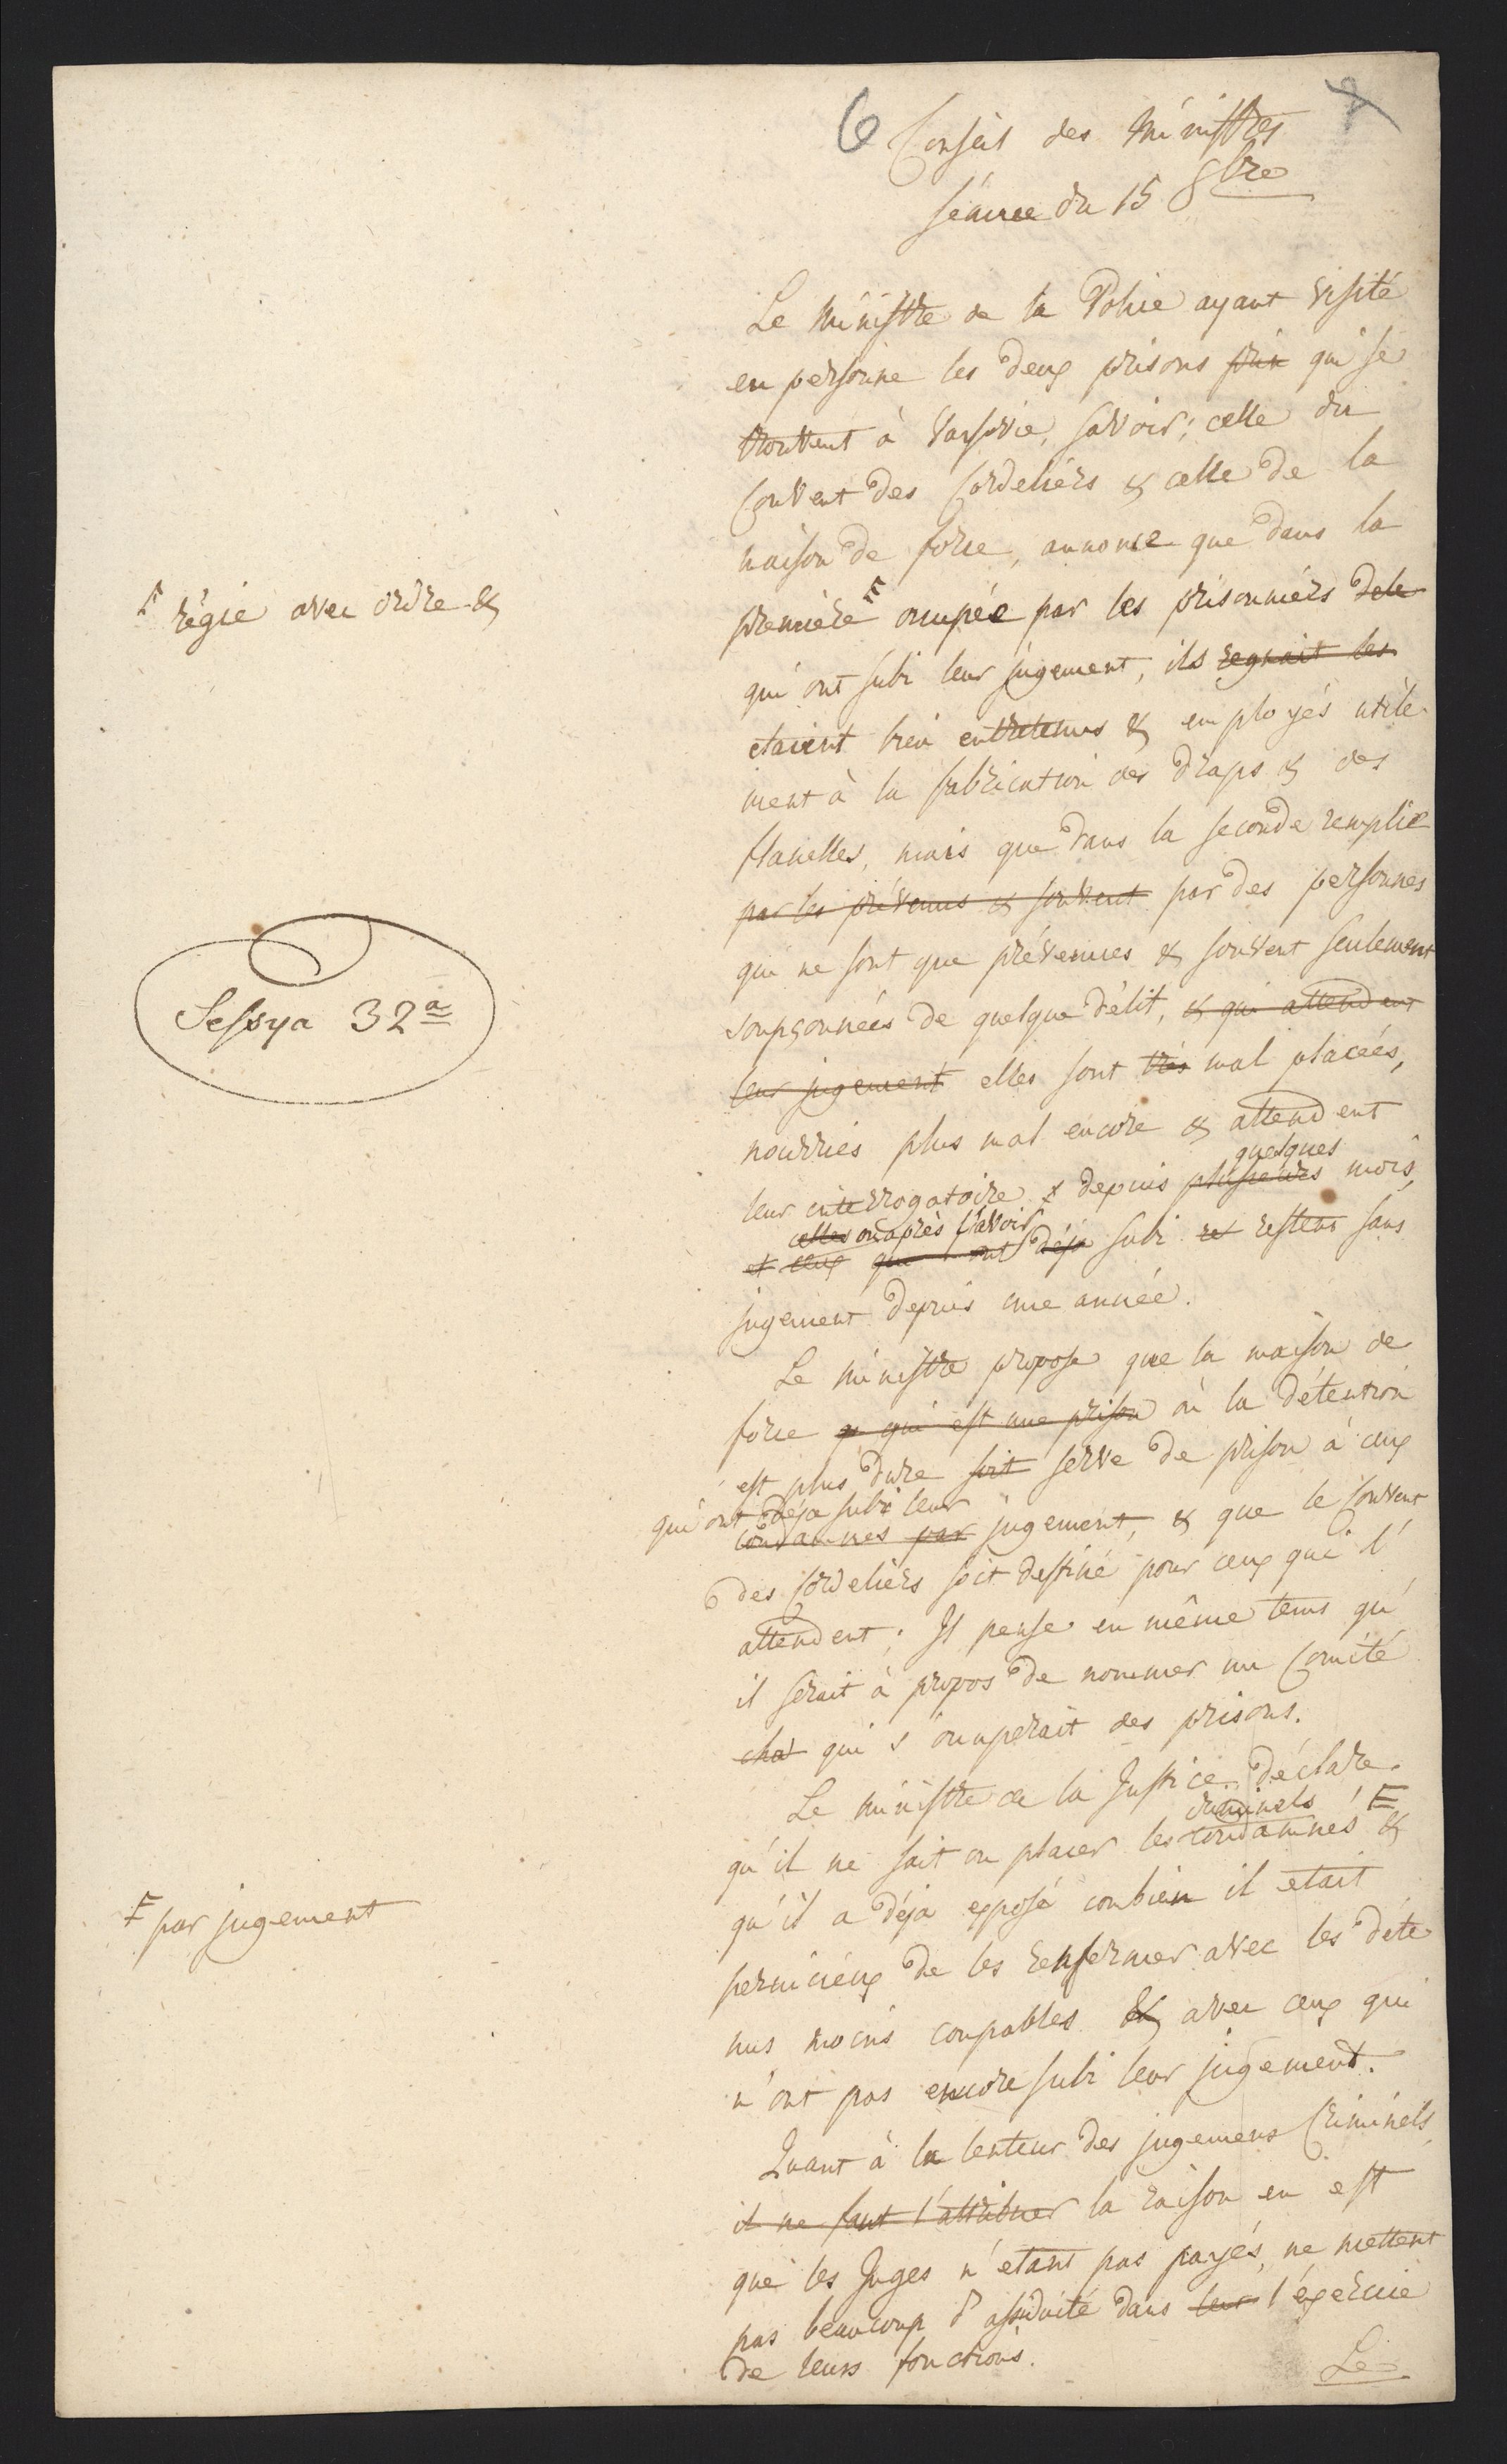 6 Conseil des Ministres
séance du 15 8bre
Le Ministre de la Police ayant visité
en personne les deux prisons qui se
trouvent à Varsovie, savoir; celle du
Couvent des Cordeliérs & celle de la
maison de force, annonce que dans la
F régie avec ordre &
premiére F occupée par les prisonniérs dete
qui ont subi leur jugement, ils regnait les
etaient bien entretenus & employés utile
ment à la fabrication des draps & des
flanelles, mais que dans la seconde remplie
par les prévenus & souvent par des personnes
qui ne sont que prévenues & souvent seulement
Sessya 32a
soupçonnées de quelque délit, & qui attendent
leur jugement elles sont très mal placées,
nourries plus mal encore & attendent
quelques
leur interrogatoire depuis plusieurs mois,
celles ou après l'avoir
et ceux qui ont déja subi et restent sans
jugement depuis une année.
Le Ministre propose que la maison de
force qui est une prison où la détention
est plus dure soit serve de prison à ceux
qui ont déja subi leur
condamnés par jugement, & que le Couvent
des Cordeliérs soit destiné pour ceux qui l'
attendent; Il pense en même tems qu'
il serait à propos de nommer un Comité
chat qui s'occuperait des prisons.
Le Ministre de la Justice déclare
criminels F
qu'il ne sait ou placer les condamnés &
F par jugement
qu'il a déja exposé combien il etait
pernicieux de les renfermer avec les déte
nus moins coupables & avec ceux qui
n'ont pas encore subi leur jugement.
Quant à la lenteur des jugemens Criminels,
il ne faut l'attribuer la raison en est
que les Juges n'etant pas payés, ne mettent
pas beaucoup d'assiduité dans leur l'exercice
de leurs fonctions.
Le